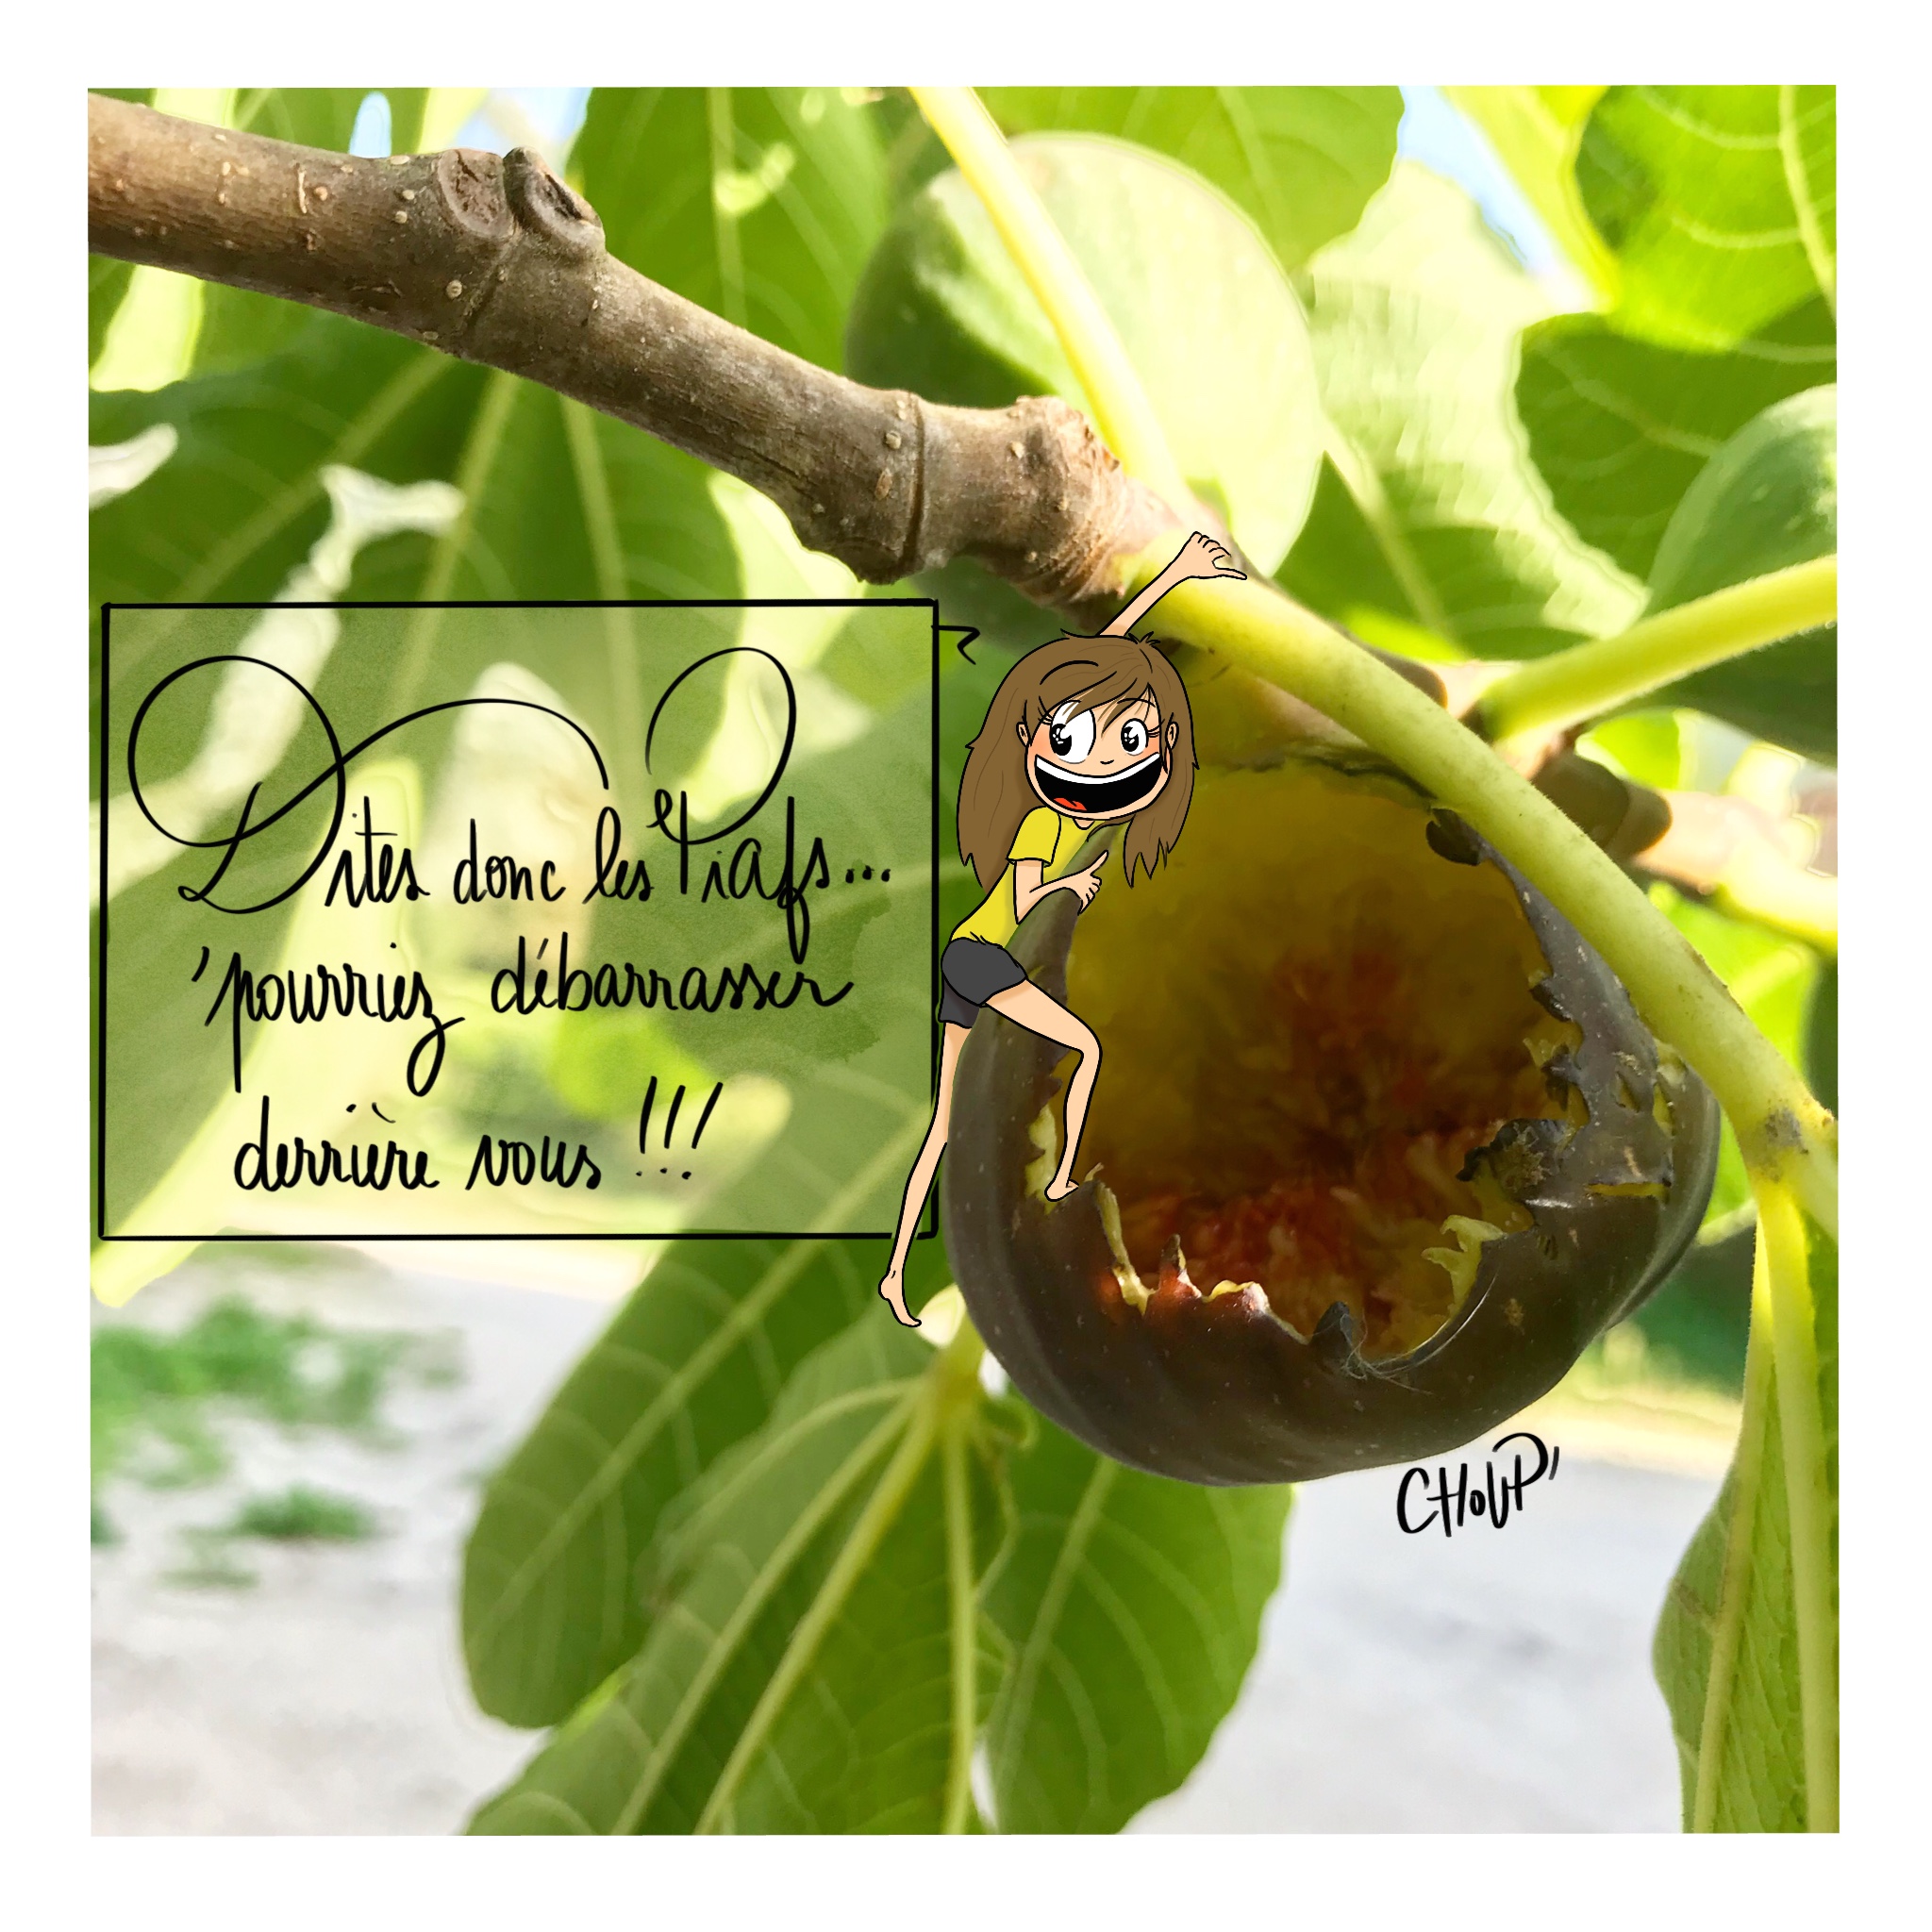 Dites donc les Piafs...
'pourriez débarrasser
derrière vous !!!
CHOUP'